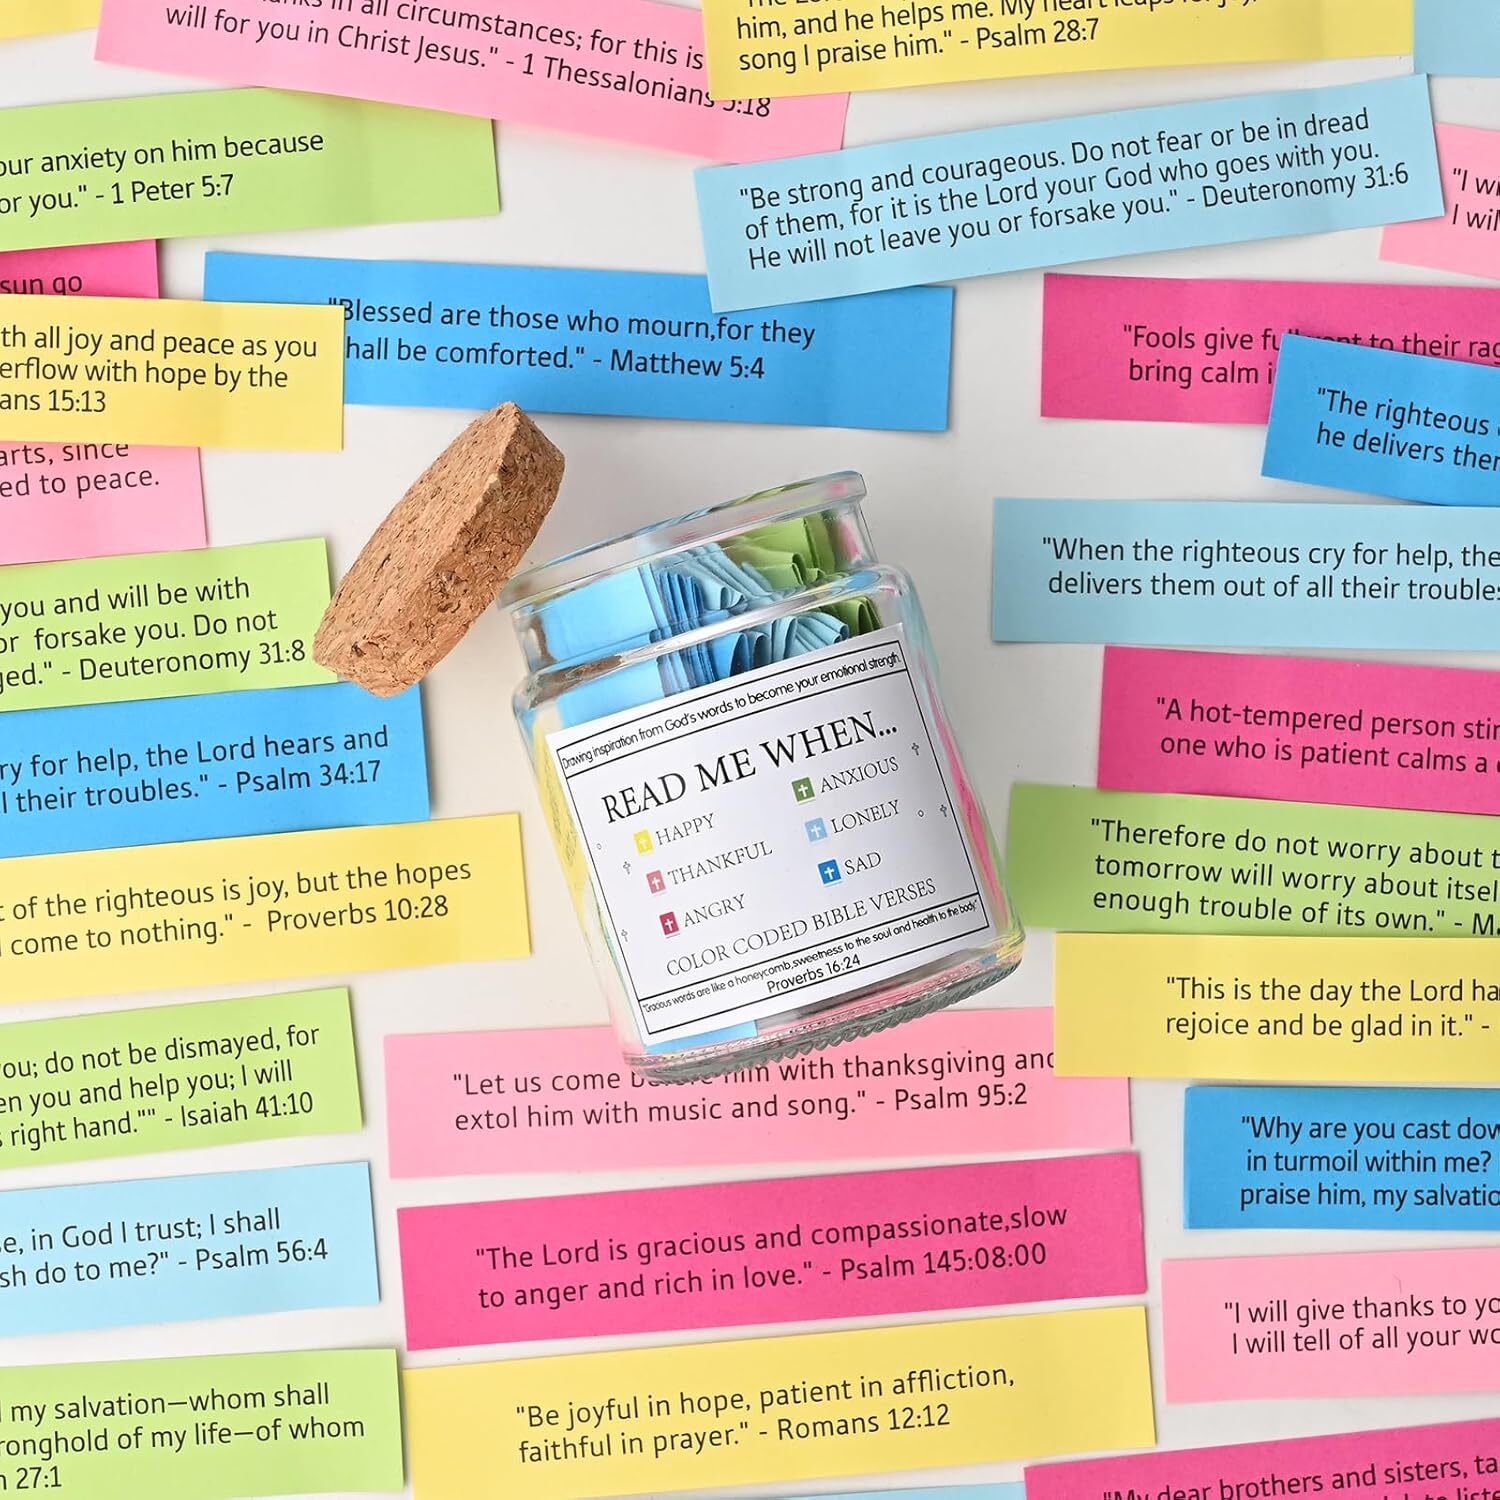 in all circumstances; for this is
will for you in Christ Jesus." - 1 Thessalonians 5:18
him, and he helps me. My heart leaps for joy,
song I praise him." - Psalm 28:7
our anxiety on him because
or you." - 1 Peter 5:7
"Be strong and courageous. Do not fear or be in dread
of them, for it is the Lord your God who goes with you.
He will not leave you or forsake you." - Deuteronomy 31:6
"I
I
sun go
"Blessed are those who mourn,for they
hall be comforted." - Matthew 5:4
th all joy and peace as you
erflow with hope by the
ans 15:13
"Fools give to their
bring calm
"The righteous
he delivers
arts, since
ed to peace.
"When the righteous cry for help, the
delivers them out of all their
you and will be with
or forsake you. Do not
ged." - Deuteronomy 31:8
"A hot-tempered person
one who is patient calms a
ry for help, the Lord hears and
l their troubles." - Psalm 34:17
Drawing inspiration from God's words to become your emotional strength.
READ ME WHEN...
HAPPY
THANKFUL
ANGRY
ANXIOUS
LONELY
SAD
COLOR CODED BIBLE VERSES
"Gracious words are like a honeycomb,sweetness to the soul and health to the body."
Proverbs 16:24
"Therefore do not worry about
tomorrow will worry about
enough trouble of its own." -
of the righteous is joy, but the hopes
come to nothing." - Proverbs 10:28
"This is the day the Lord
rejoice and be glad in it." -
ou; do not be dismayed, for
en you and help you; I will
right hand."" - Isaiah 41:10
"Let us come before him with thanksgiving and
extol him with music and song." - Psalm 95:2
"Why are you cast
in turmoil within me?
praise him, my
e, in God I trust; I shall
sh do to me?" - Psalm 56:4
"The Lord is gracious and compassionate,slow
to anger and rich in love." - Psalm 145:08:00
"I will give thanks to
I will tell of all your
my salvation—whom shall
ronghold of my life—of whom
27:1
"Be joyful in hope, patient in affliction,
faithful in prayer." - Romans 12:12
"My dear brothers and sisters,